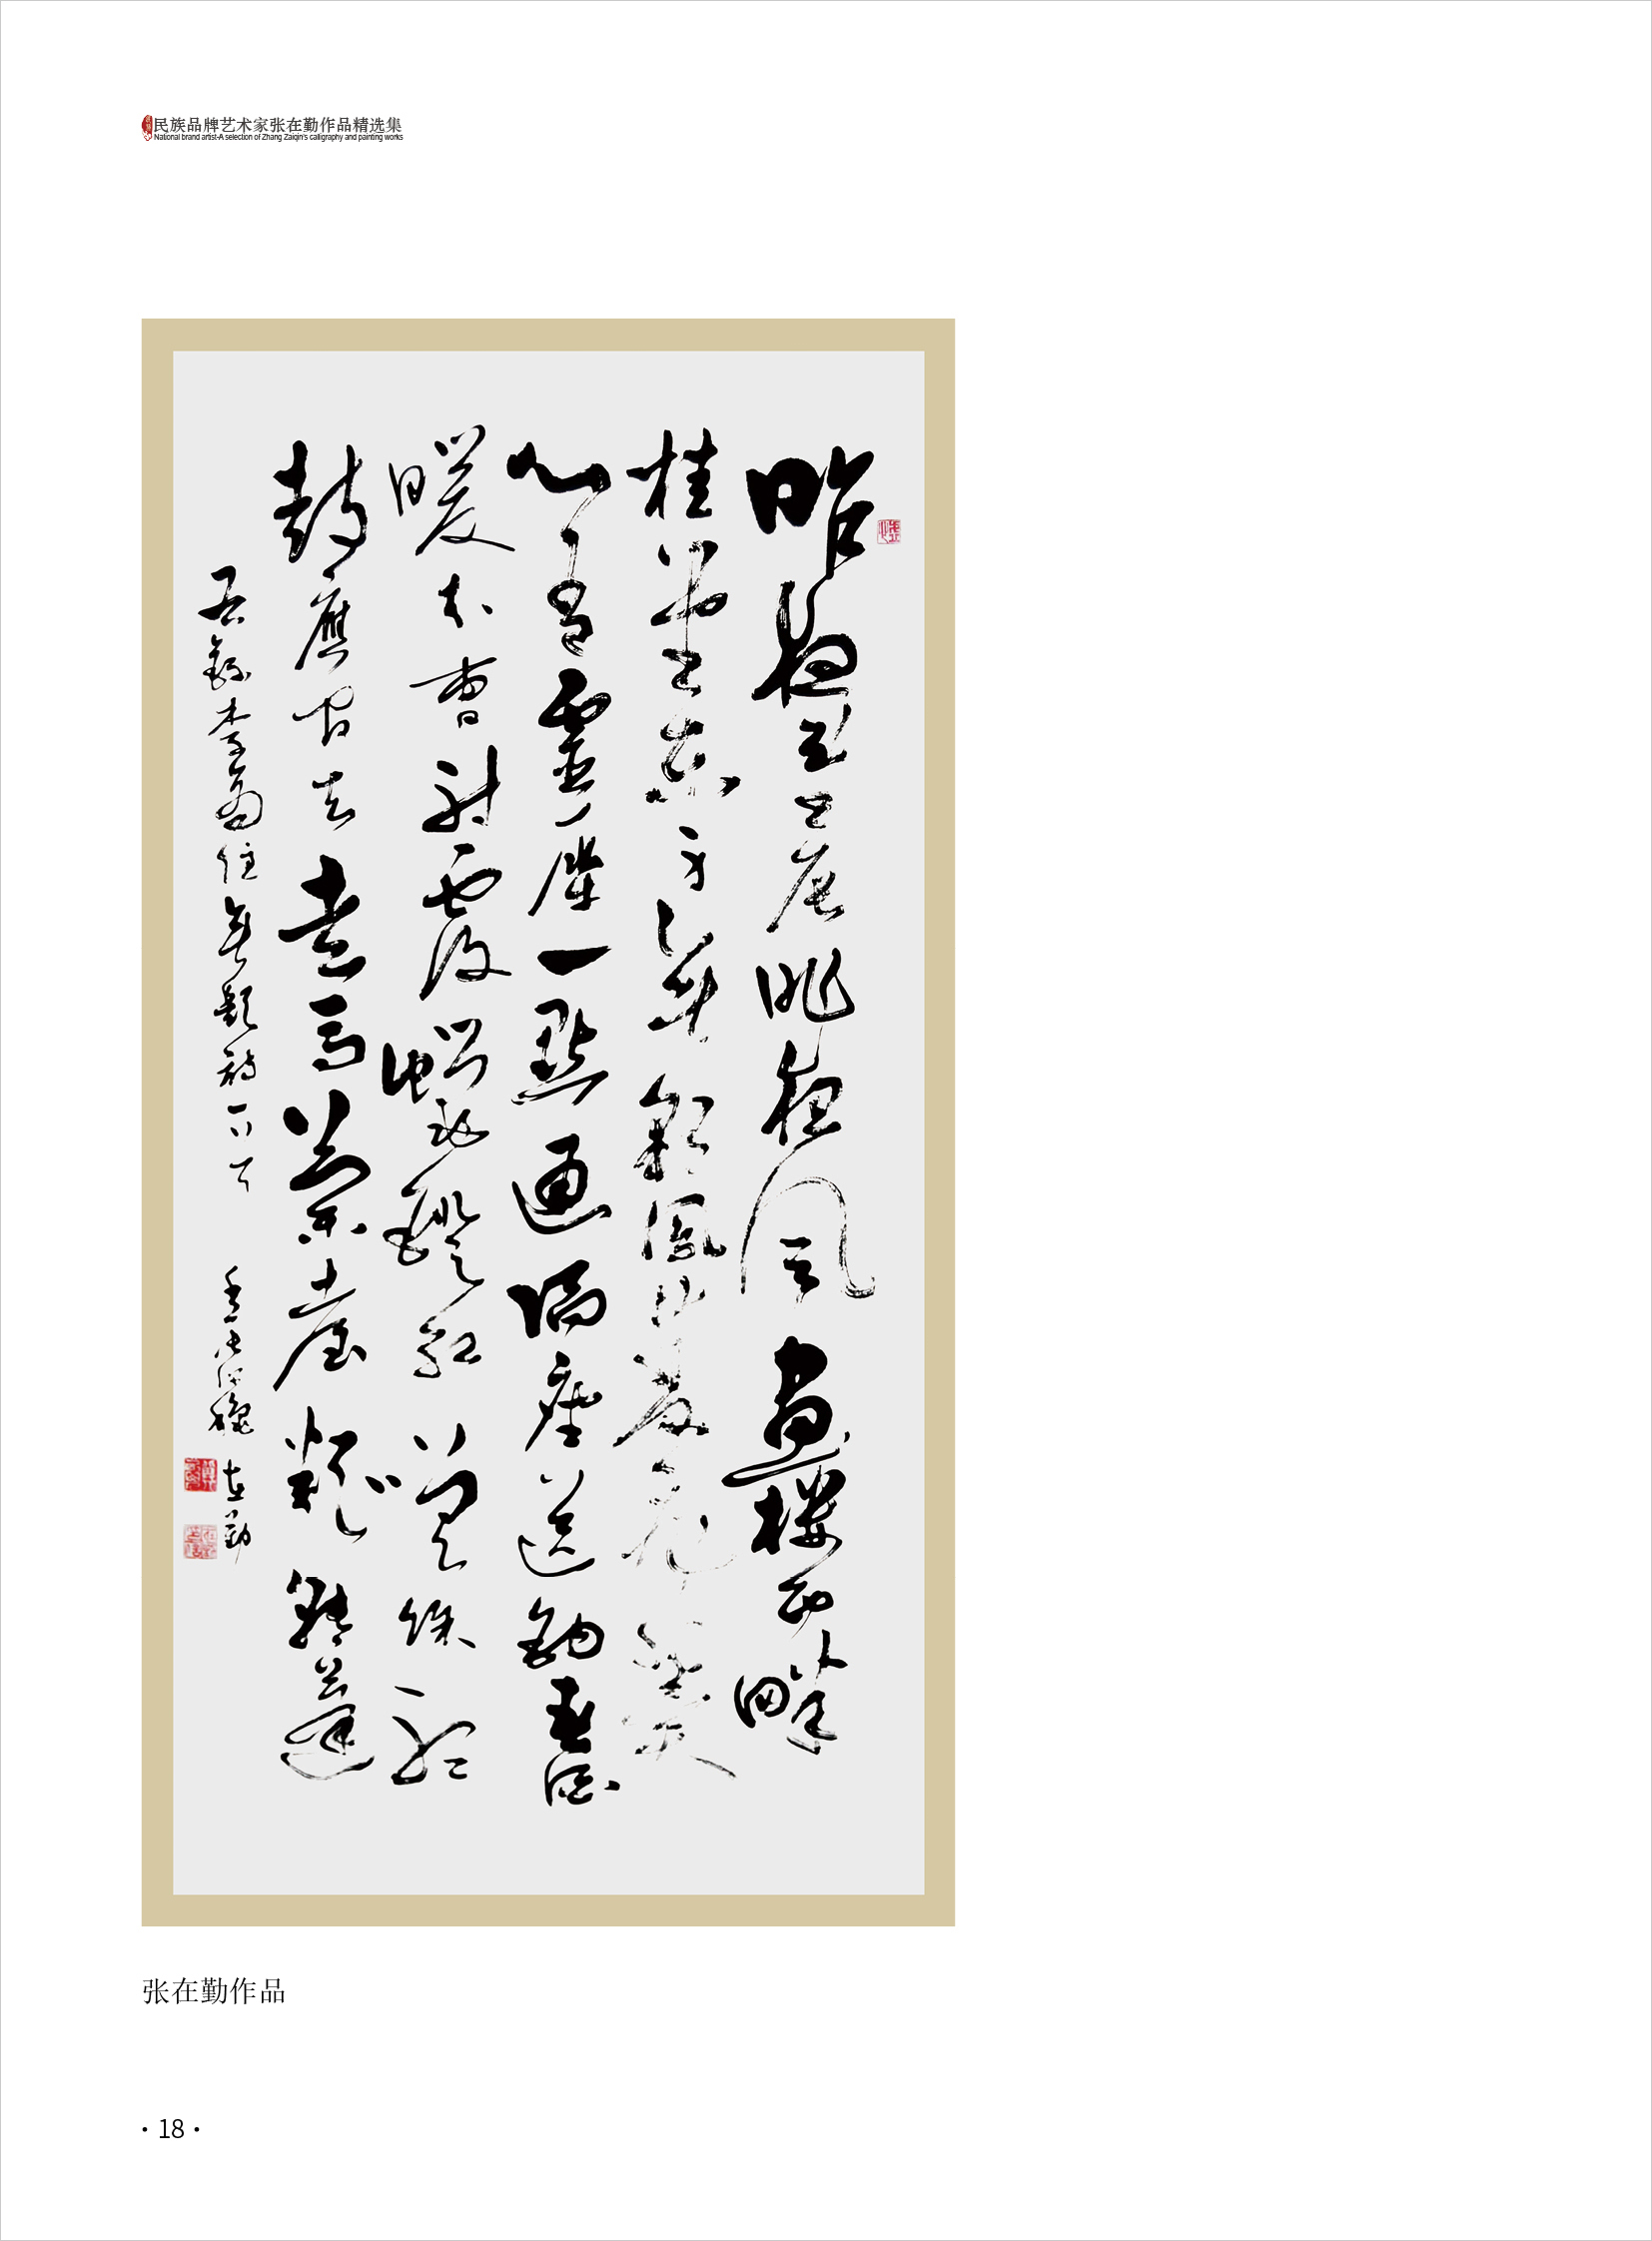 民族品牌艺术家张在勤作品精选集
National brand artist-A selection of Zhang Zaiqin's calligraphy and painting works
昨夜星辰昨夜風畫樓西畔
桂堂東身無彩鳳雙飛翼
心有靈犀一點通隔座送鈎春酒
暖分曹射覆蠟燈紅嗟余聽
鼓應官去走馬蘭臺類轉蓬
右錄李商隱無題詩一首 在勤
张在勤作品
· 18 ·